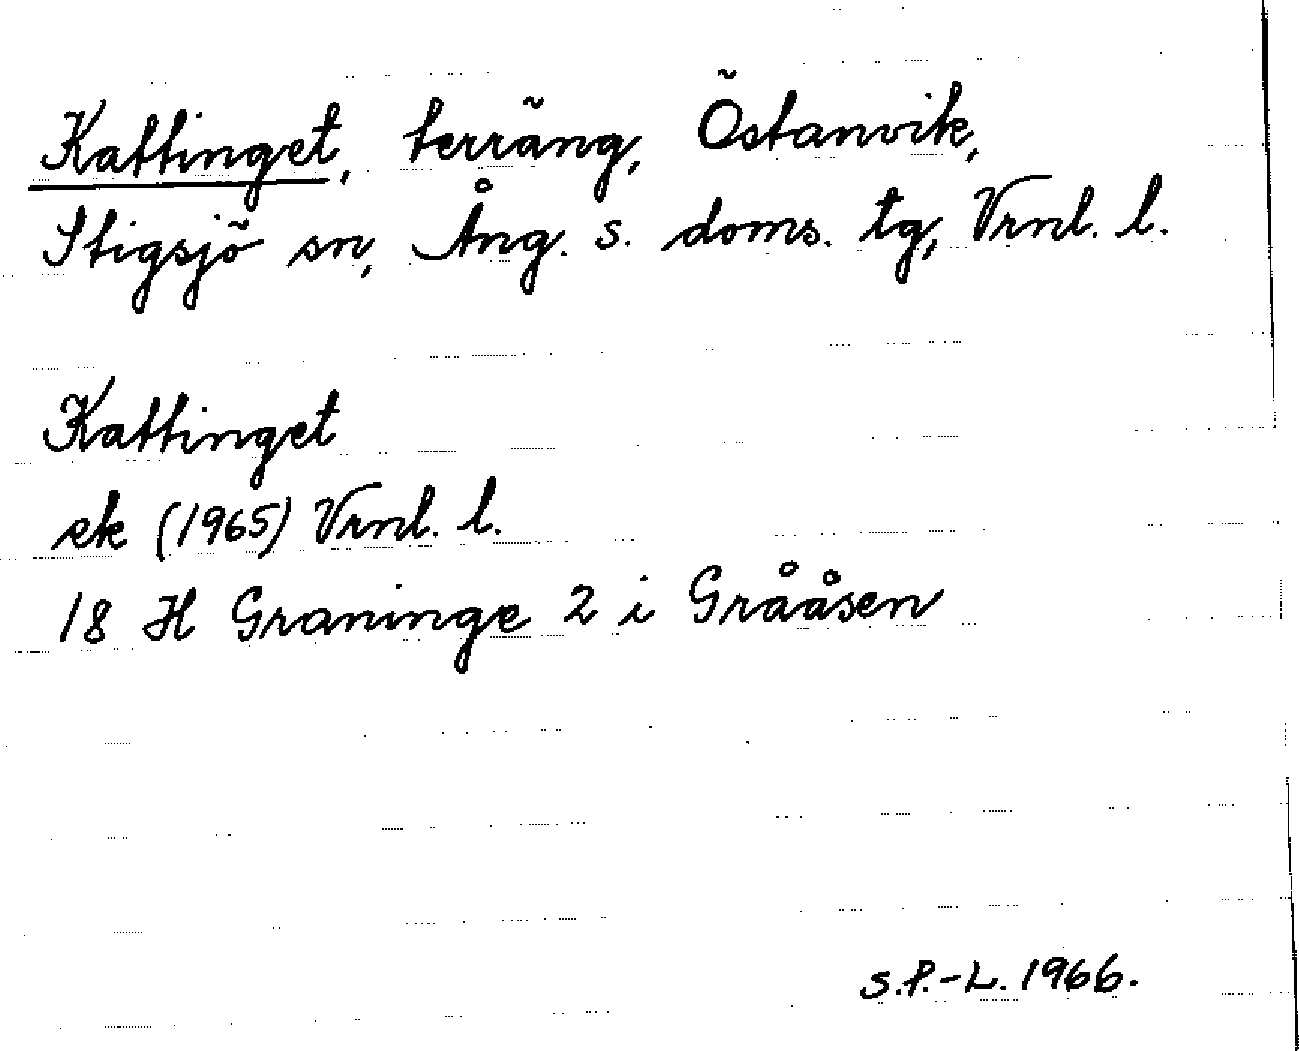 Kattinget, terräng, Östanvik,
Stigsjö sn, Ång. s. doms. tg, Vrnl. l.
Kattinget
ek (1965) Vrnl. l.
18 H Graninge 2 i Grååsen
S.P.-L. 1966.